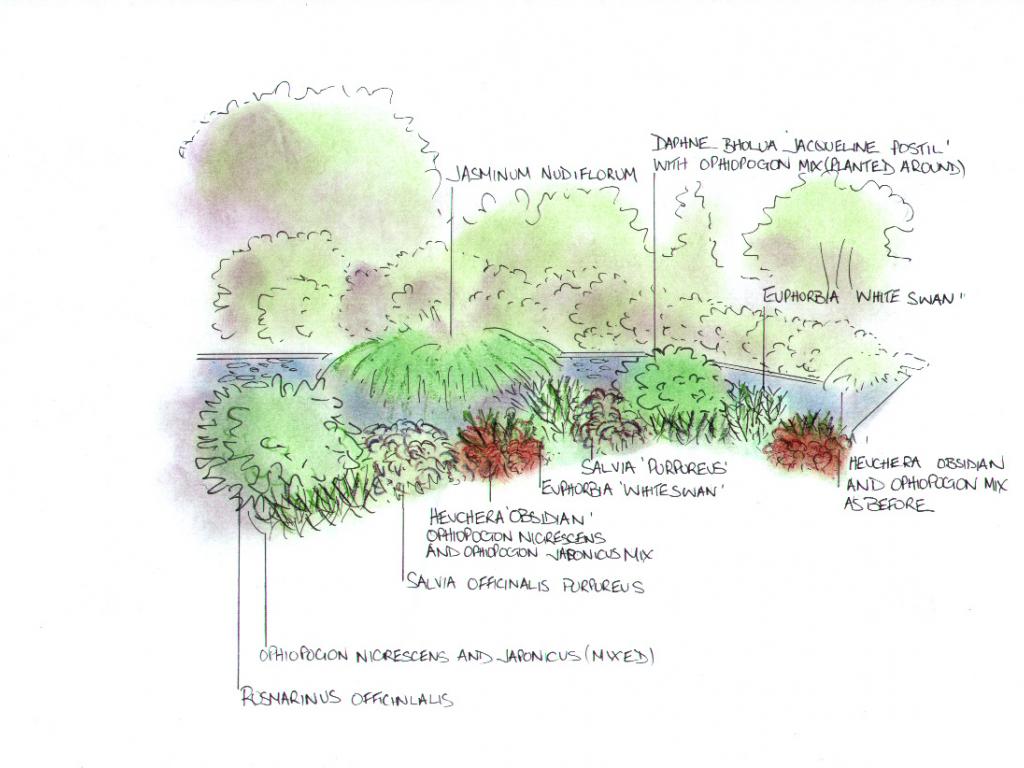 DAPHNE BHOLUA 'JACQUELINE POSTIL'
WITH OPHIOPOGON MIX (PLANTED AROUND)
JASMINUM NUDIFLORUM
EUPHORBIA 'WHITE SWAN'
SALVIA 'PURPUREUS'
EUPHORBIA 'WHITESWAN'
HEUCHERA OBSIDIAN
AND OPHIOPOGION MIX
AS BEFORE
HEUCHERA 'OBSIDIAN'
OPHIOPOGION NIGRESCENS
AND OPHIOPOGION JAPONICUS MIX
SALVIA OFFICINALIS PURPUREUS
OPHIOPOGION NIGRESCENS AND JAPONICUS (MIXED)
ROSMARINUS OFFICINLALIS